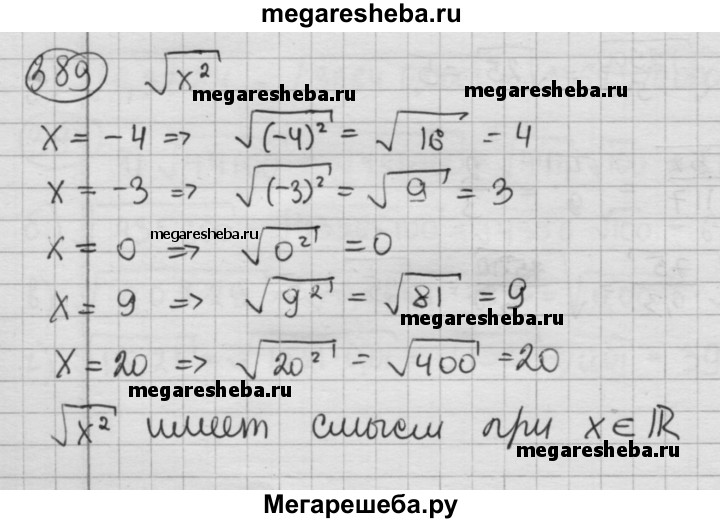 megaresheba.ru
389 √x²
megaresheba.ru megaresheba.ru
x = -4 => √(-4)² = √16 = 4
x = -3 => √(-3)² = √9 = 3
x = 0 => √0² = 0
megaresheba.ru
x = 9 => √9² = √81 = 9
megaresheba.ru
x = 20 => √20² = √400 = 20
megaresheba.ru
√x² имеет смысл при x ∈ ℝ
megaresheba.ru
Мегарешеба.ру